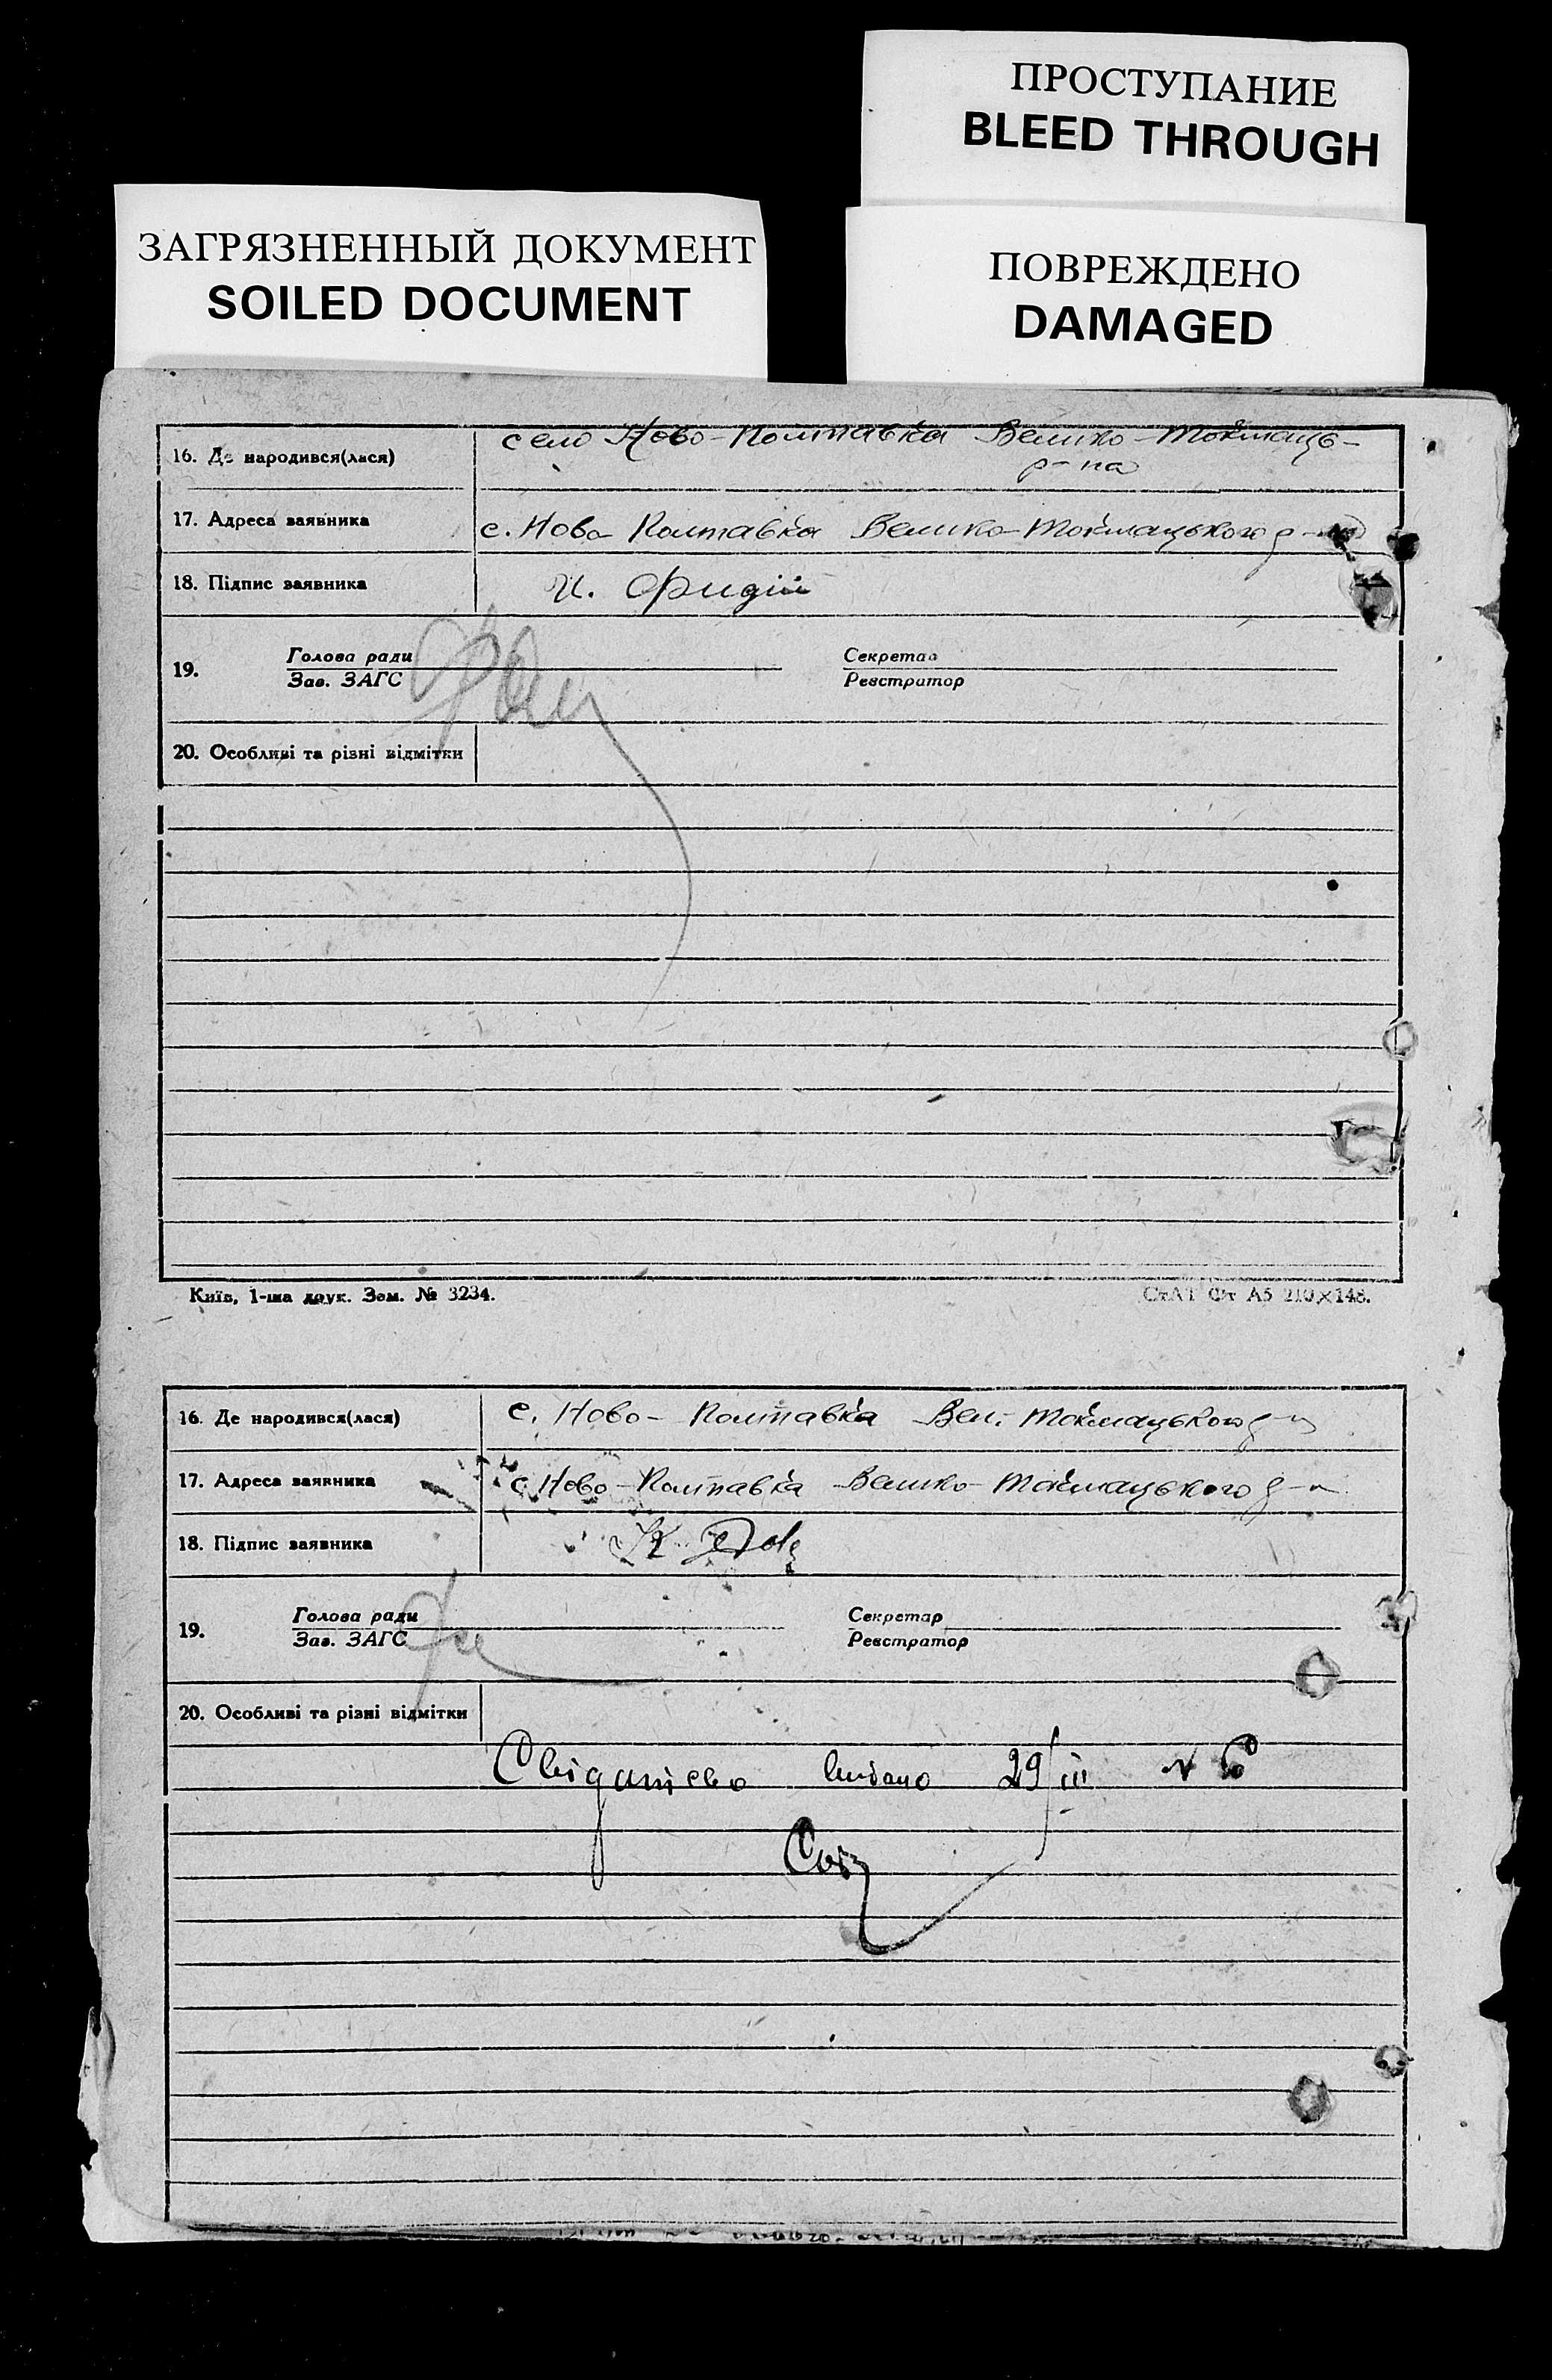 ПРОСТУПАНИЕ
BLEED THROUGH
ЗАГРЯЗНЕННЫЙ ДОКУМЕНТ
SOILED DOCUMENT
ПОВРЕЖДЕНО
DAMAGED
16. Де народився(лася) село Ново-Полтавка Велико-Токмаць-
р-на
17. Адреса заявника с. Ново Полтавка Велико-Токмацького р-
18. Підпис заявника И.
19. Голова ради Секретар
Зав. ЗАГС Реєстратор
20. Особливі та різні відмітки
Київ, 1-ша друк. Зам. № 3234. СтАТ Ф/т А5 210×148.
16. Де народився(лася) с. Ново-Полтавка Вел. Токмацького р-н
17. Адреса заявника с. Ново-Полтавка Велико-Токмацького р-н
18. Підпис заявника
19. Голова ради Секретар
Зав. ЗАГС Реєстратор
20. Особливі та різні відмітки
Свідоцтво видано 29/III